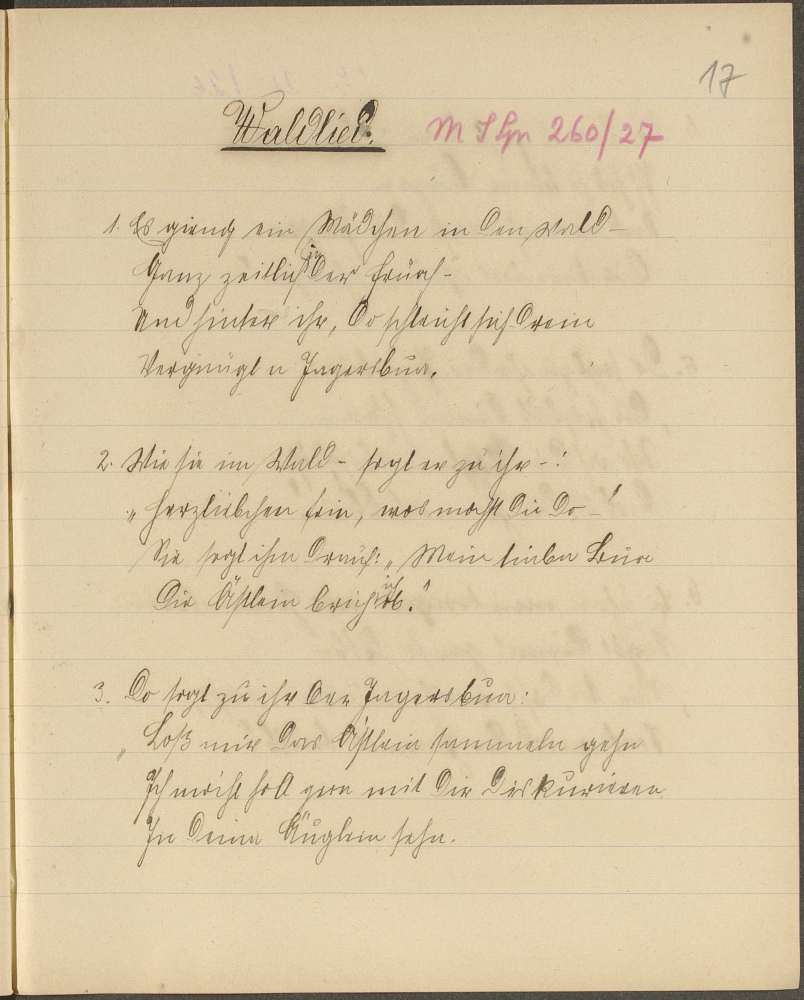 17
Waldlied.
260/27
1. Es gieng ein Mädchen in den Wald –
Ganz zeitlich in der Früah –
Und hinter ihr, do schleicht sich drein
Vergnügt a Jagersbua.
2. Wie sie im Wald – sogt er zu ihr –:
„Herzliebchen fein, wos mochst Du do –!
Sie sogt ihm drauf: „Mein lieber Bua
Die Ästlein brich ich ob.“
3. Do sogt zu ihr der Jagersbua:
„Loß mir das Ästlein sammeln gehn
Ich möcht holt gern mit Dir diskurieren
In Deine Äuglein sehn.